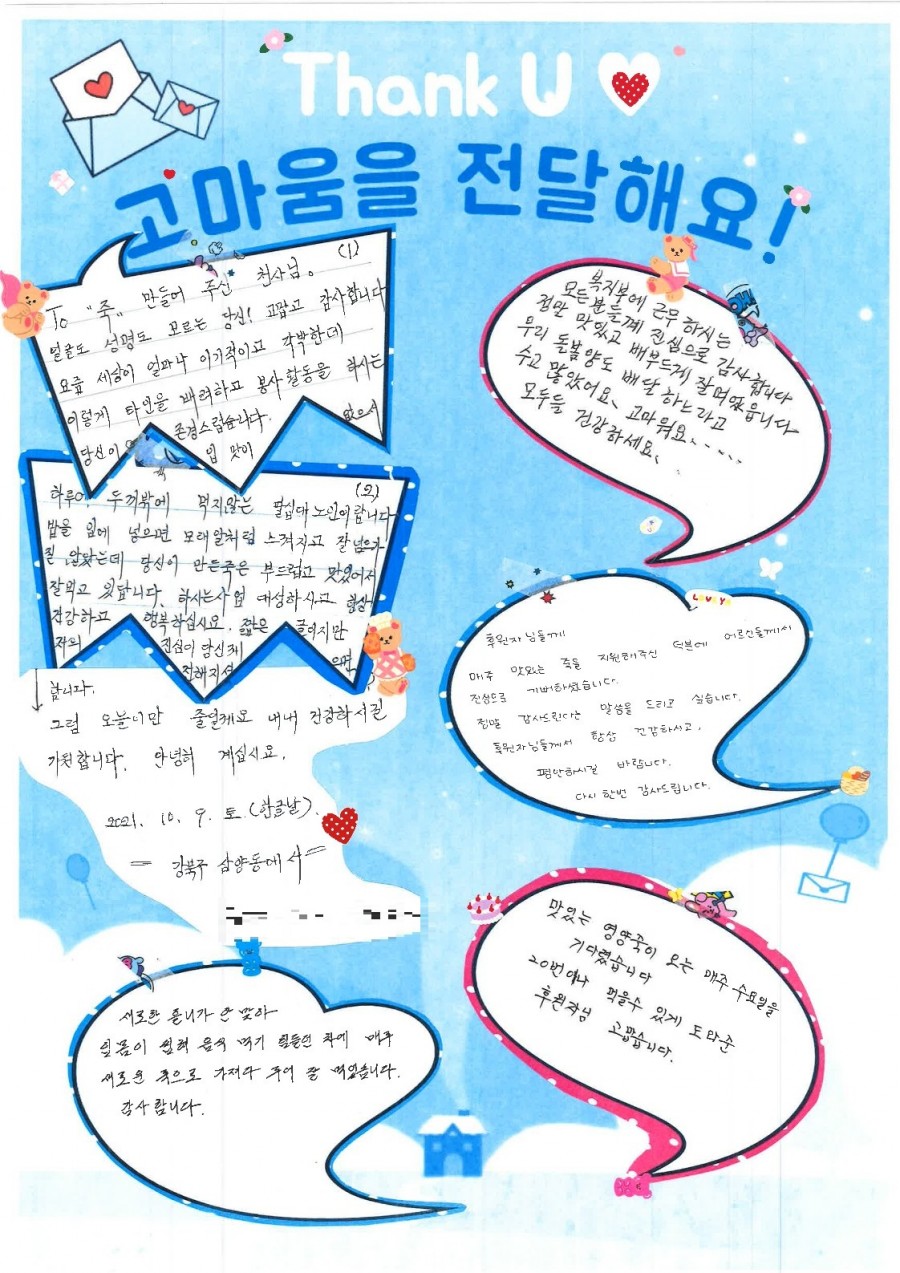 Thank U
고마움을 전달해요!
(1)
To "죽" 만들어 주신 천사님.
얼굴도 성명도 모르는 당신! 고맙고 감사합니다
요즘 세상이 얼마나 이기적이고 각박한데
이렇게 타인을 배려하고 봉사활동을 하시는
당신이 존경스럽습니다.
입 맛이 없으서
(2)
하루에 두끼밖에 먹지않는 팔십대 노인이랍니다
밥을 입에 넣으면 모래알처럼 느껴지고 잘넘으가
질 않았는데 당신이 만든죽은 부드럽고 맛있어서
잘먹고 있답니다. 하시는사업 대성하시고 항상
건강하고 행복하십시요. 짧은 글이지만
저의 진심이 당신께
전해지셨으면
합니다.
그럼 오늘이만 줄일께요 내내 건강하시길
기원합니다. 안녕히 계십시요.
2021. 10. 9. 토. (한글날).
= 강북구 삼양동에서 =
복지부에 근무하시는
모든분들께 진심으로 감사합니다
정말 맛있고 배부르게 잘먹었읍니다
우리 돌봄양도 배달하느라고
수고 많았어요, 고마워요....
모두들 건강하세요.
LOVE YO
후원자님들께
매주 맛있는 죽을 지원해주신 덕분에 어르신들께서
진심으로 기뻐하셨습니다.
정말 감사드린다는 말씀을 드리고 싶습니다.
후원자님들께서 항상 건강하시고,
평안하시길 바랍니다.
다시 한번 감사드립니다.
새로한 틀니가 안 맞아
잇몸이 씹혀 음식 먹기 힘들던 차에 매주
새로운 죽으로 가져다 주어 잘 먹었습니다.
감사 합니다.
맛있는 영양죽이 오는 매주 수요일을
기다렸습니다
20번이나 먹을수 있게 도와준
후원자님 고맙습니다.